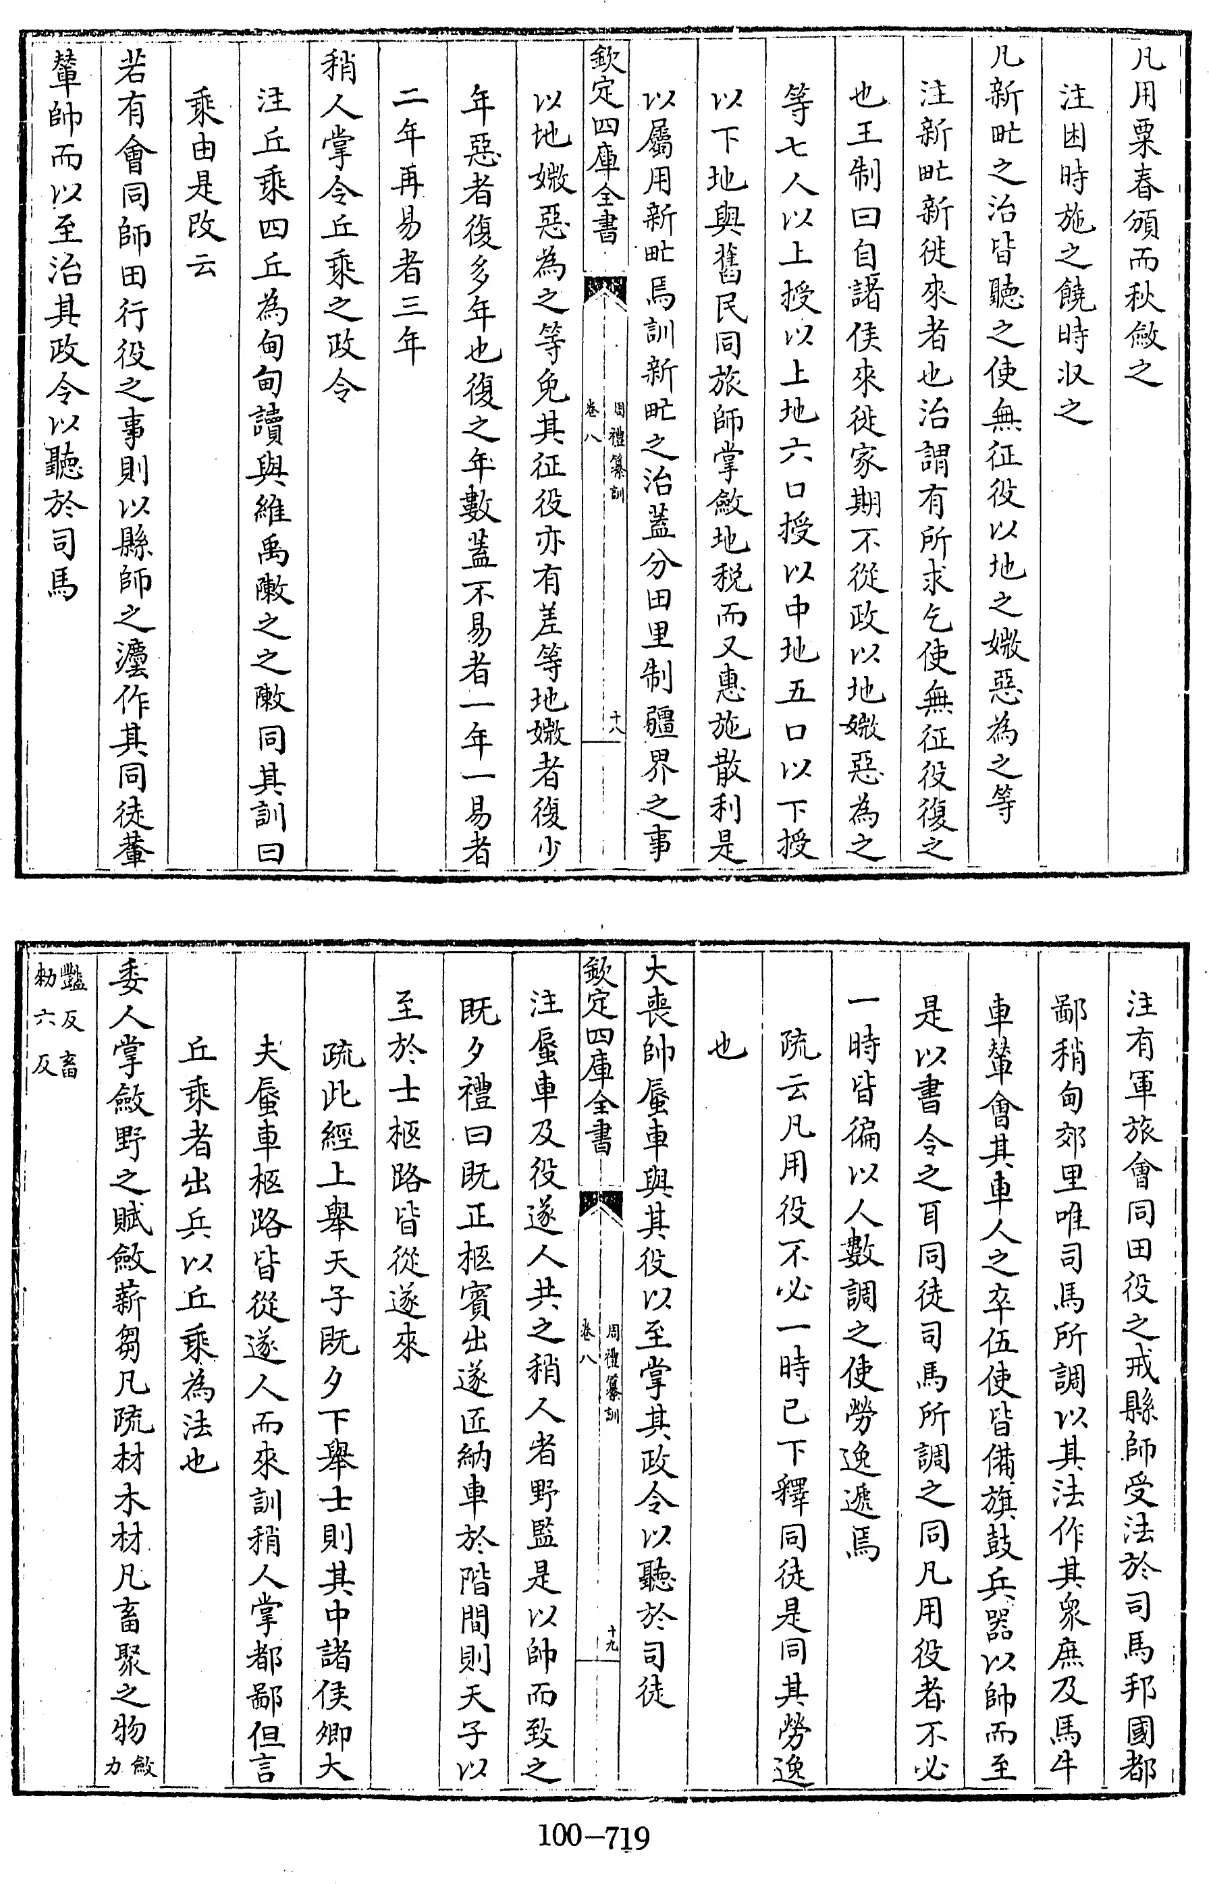 凡用粟春頒而秋斂之
注困時施之饒時收之
凡新甿之治皆聽之使無征役以地之媺惡為之等
注新甿新徙來者也治謂有所求乞使無征役復之
也王制曰自諸侯來徙家期不從政以地媺惡為之
等七人以上授以上地六口授以中地五口以下授
以下地與舊民同旅師掌斂地税而又惠施散利是
以屬用新甿焉訓新甿之治蓋分田里制疆界之事
欽定四庫全書
周禮纂訓
卷八
十八
以地媺惡為之等免其征役亦有差等地媺者復少
年惡者復多年也復之年數蓋不易者一年一易者
二年再易者三年
稍人掌令丘乘之政令
注丘乘四丘為甸甸讀與維禹敶之之敶同其訓曰
乘由是改云
若有會同師田行役之事則以縣師之灋作其同徒輂
輦帥而以至治其政令以聽於司馬
注有軍旅會同田役之戒縣師受法於司馬邦國都
鄙稍甸郊里唯司馬所調以其法作其衆庶及馬牛
車輦會其車人之卒伍使皆備旗鼓兵器以帥而至
是以書令之耳同徒司馬所調之同凡用役者不必
一時皆徧以人數調之使勞逸遞焉
疏云凡用役不必一時已下釋同徒是同其勞逸
也
大喪帥蜃車與其役以至掌其政令以聽於司徒
欽定四庫全書
周禮纂訓
卷八
十九
注蜃車及役遂人共之稍人者野監是以帥而致之
既夕禮曰既正柩賓出遂匠納車於階間則天子以
至於士柩路皆從遂來
疏此經上舉天子既夕下舉士則其中諸侯卿大
夫蜃車柩路皆從遂人而來訓稍人掌都鄙但言
丘乘者出兵以丘乘為法也
委人掌斂野之賦斂薪芻凡疏材木材凡畜聚之物斂力
豔反畜
勑六反
100-719